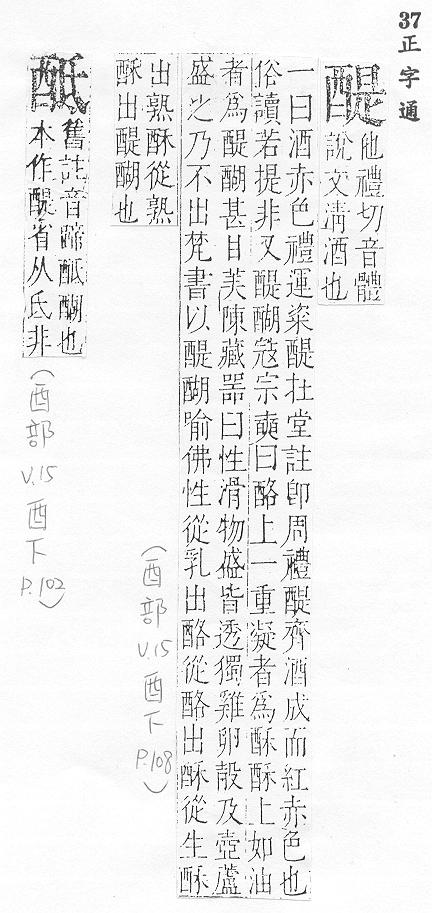 37正字通
醍
他禮切音體
說文淸酒也
一曰酒赤色禮運粢醍在堂註卽周禮醍齊酒成而紅赤色也
俗讀若提非又醍醐寇宗奭曰酪上一重凝者爲酥酥上如油
者爲醍醐甚甘美陳藏器曰性滑物盛皆透獨雞卵殼及壺蘆
盛之乃不出梵書以醍醐喻佛性從乳出酪從酪出酥從生酥
出熟酥從熟
酥出醍醐也
(酉部 V.15 酉下 P.108)
酼
舊註音蹄酼醐也
本作醍省从氐非
(酉部 V.15 酉下 P.102)